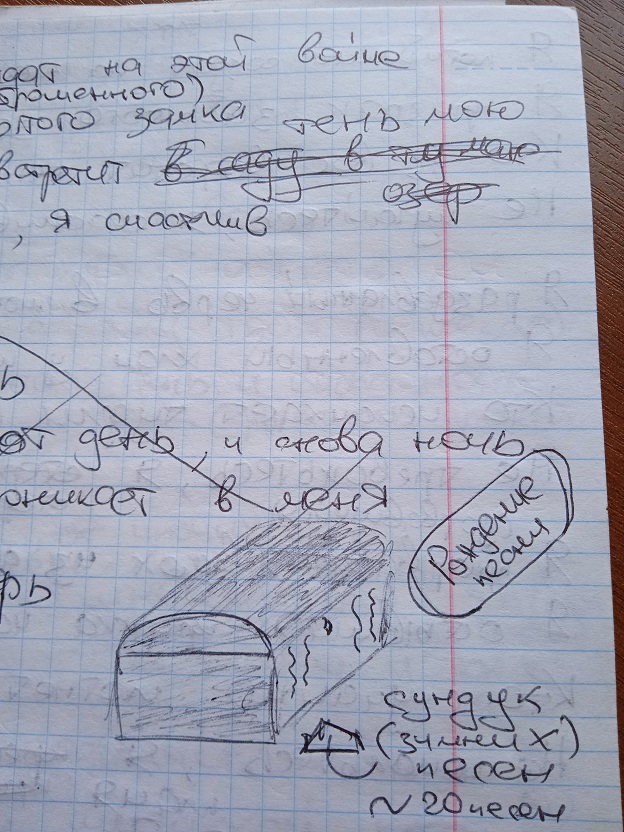 на этой войне
временного)
замка тень мою
встретит в саду в
озёр
, я счастлив
ь
от день, и снова ночь
оникает в меня
Рождение
песни
рь
сундук
(зимних)
песен
~20 песен